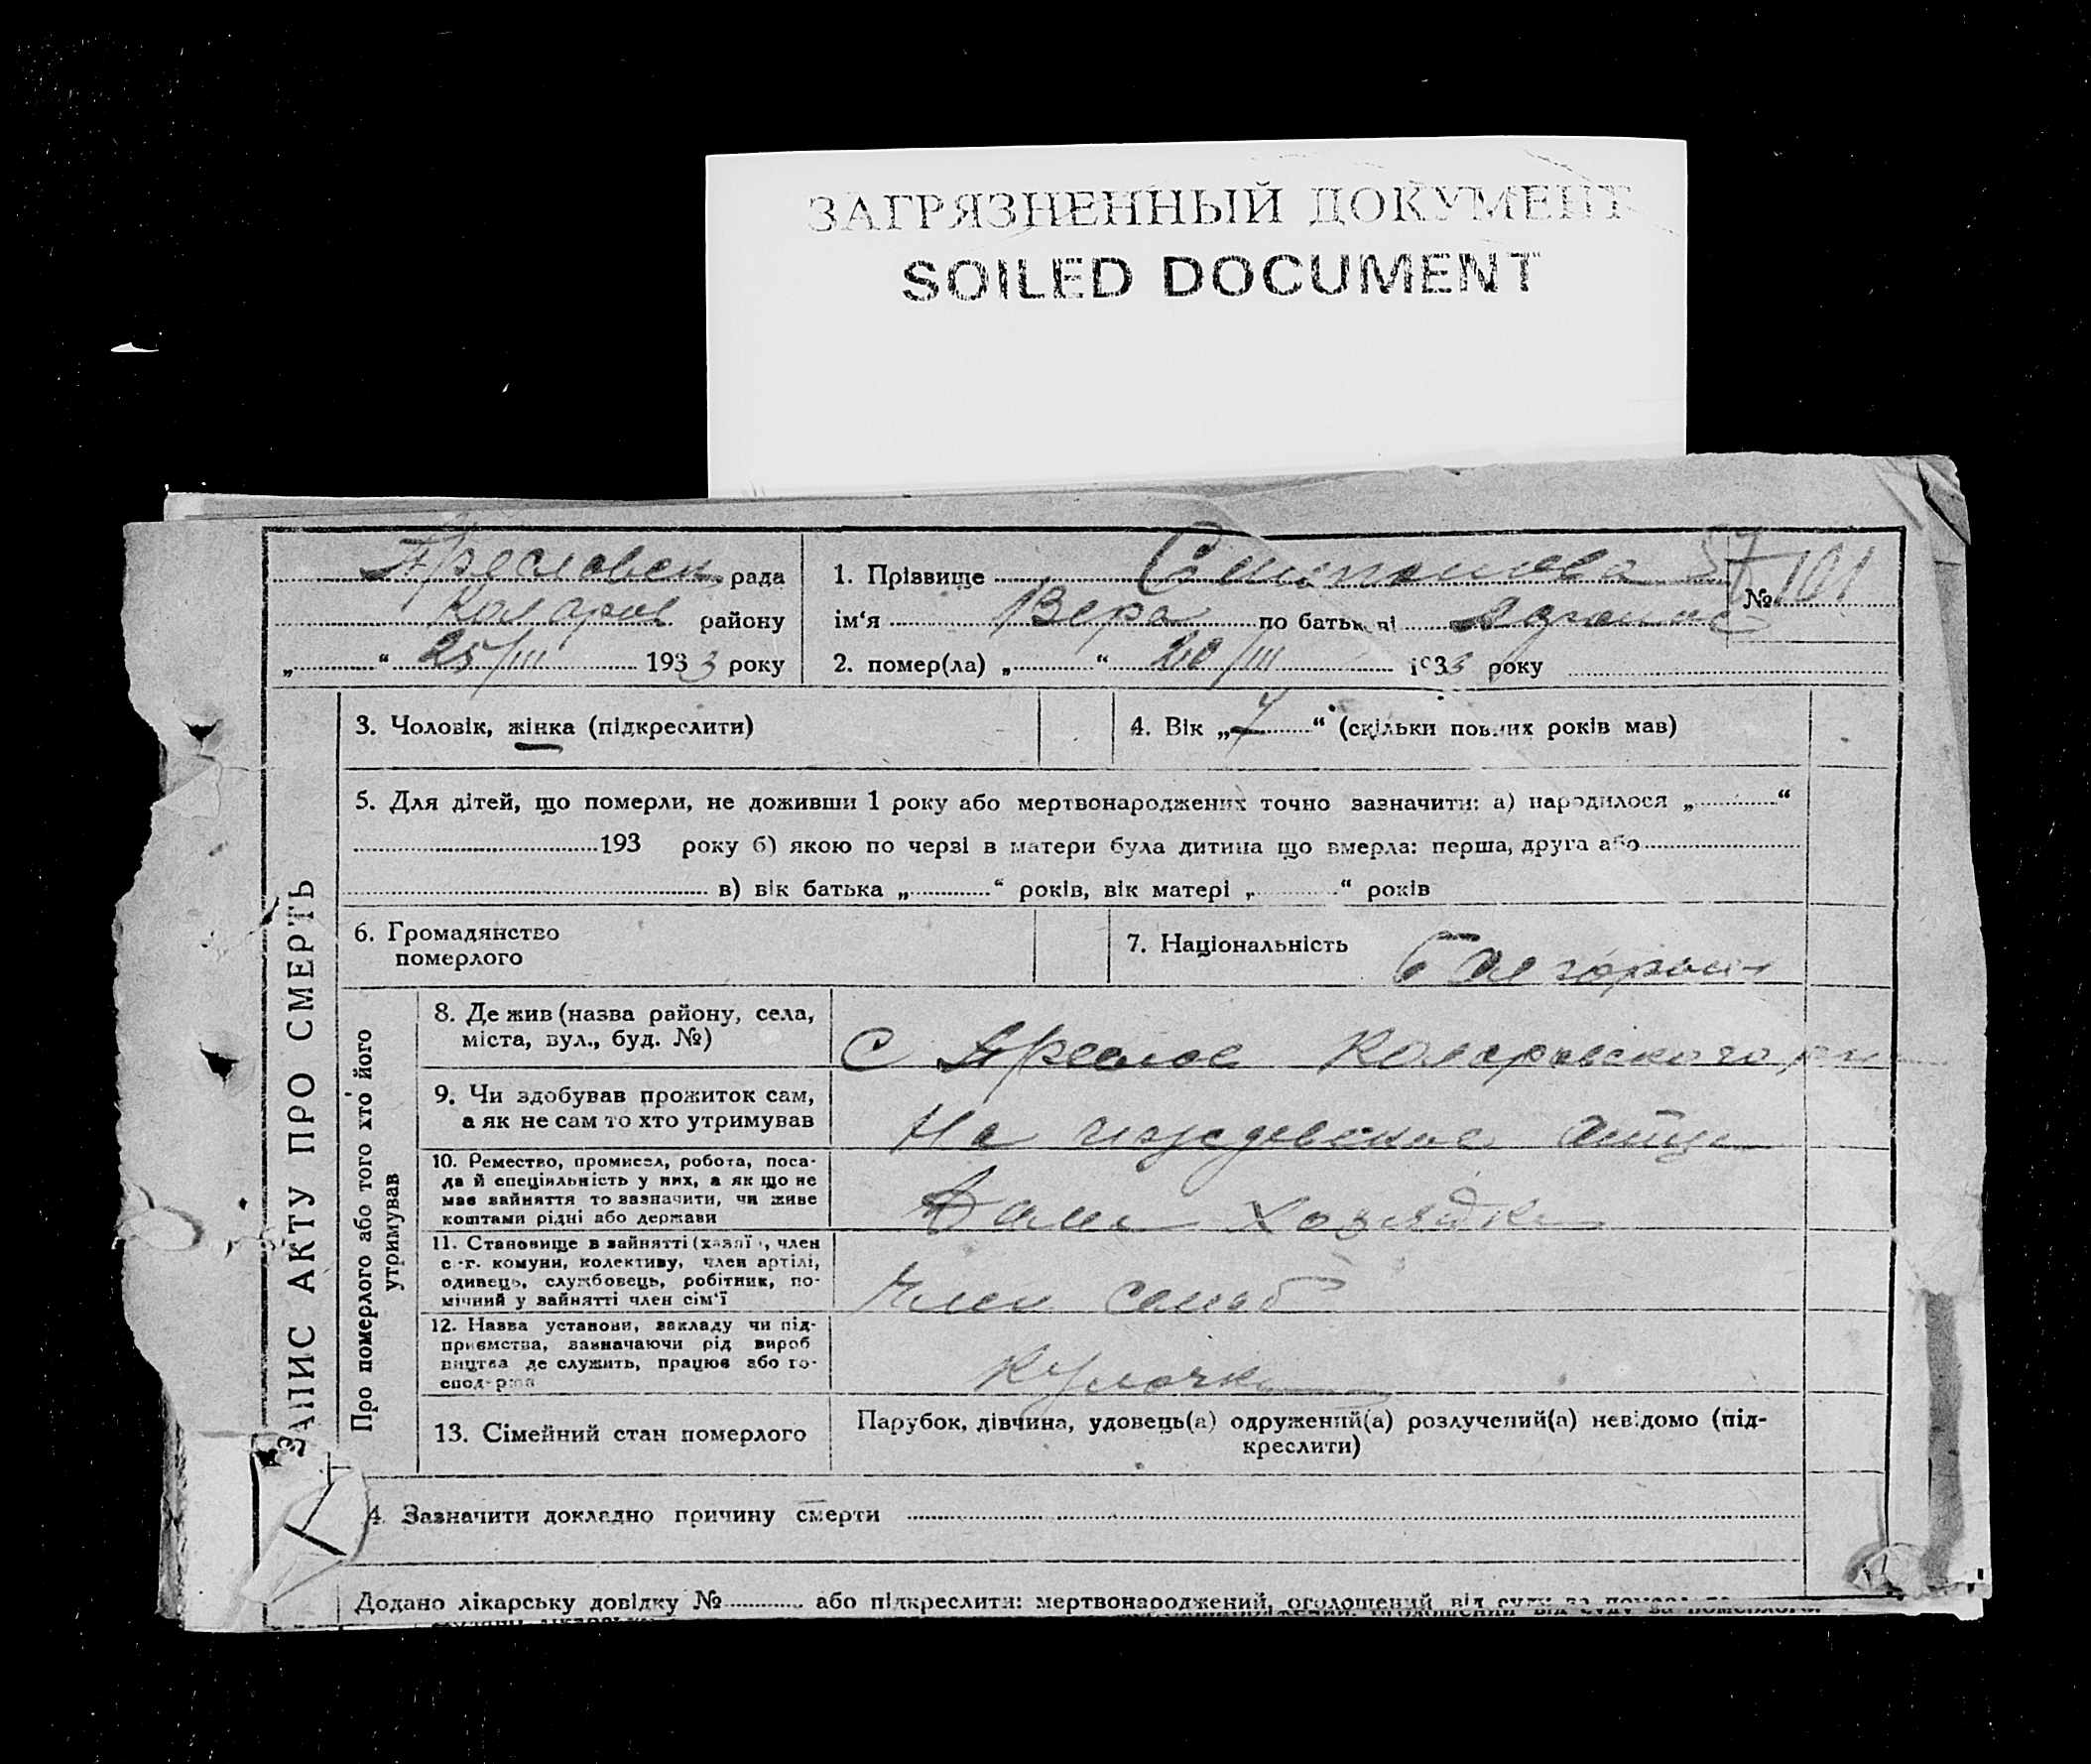 ЗАГРЯЗНЕННЫЙ ДОКУМЕНТ
SOILED DOCUMENT
рада
Колоров району
„ “ 25/III 1933 року
1. Прізвище
№ 101
ім‘я Вера по батькові
2. помер(ла) „ “ 20/III 1933 року
ЗАПИС АКТУ ПРО СМЕРТЬ
3. Чоловік, жінка (підкреслити)
4. Вік „7“ (скільки повних років мав)
5. Для дітей, що померли, не доживши 1 року або мертвонароджених точно зазначити: а) народилося „ “
193 року б) якою по черзі в матери була дитина що вмерла: перша, друга або
в) вік батька „ “ років, вік матері „ “ років
6. Громадянство
померлого
7. Національність
Про померлого або того хто його
утримував
8. Де жив (назва району, села,
міста, вул., буд. №)
с Коларовского
9. Чи здобував прожиток сам,
а як не сам то хто утримував
На
10. Ремество, промисел, робота, поса-
да й спеціяльність у них, а як що не
має зайняття то зазначити, чи живе
коштами рідні або держави
Дом хозяйка
11. Становище в зайнятті (хазяїн, член
с.-г. комуни, колективу, член артілі,
одинець, службовець, робітник, по-
мічний у зайнятті член сім‘ї
Член
12. Назва установи, закладу чи під-
приємства, зазначаючи рід вироб
ництва де служить, працює або го-
сподарює
13. Сімейний стан померлого
Парубок, дівчина, удовець(а) одружений(а) розлучений(а) невідомо (під-
креслити)
4 Зазначити докладно причину смерти
Додано лікарську довідку № або підкреслити: мертвонароджений, оголошений від суду за